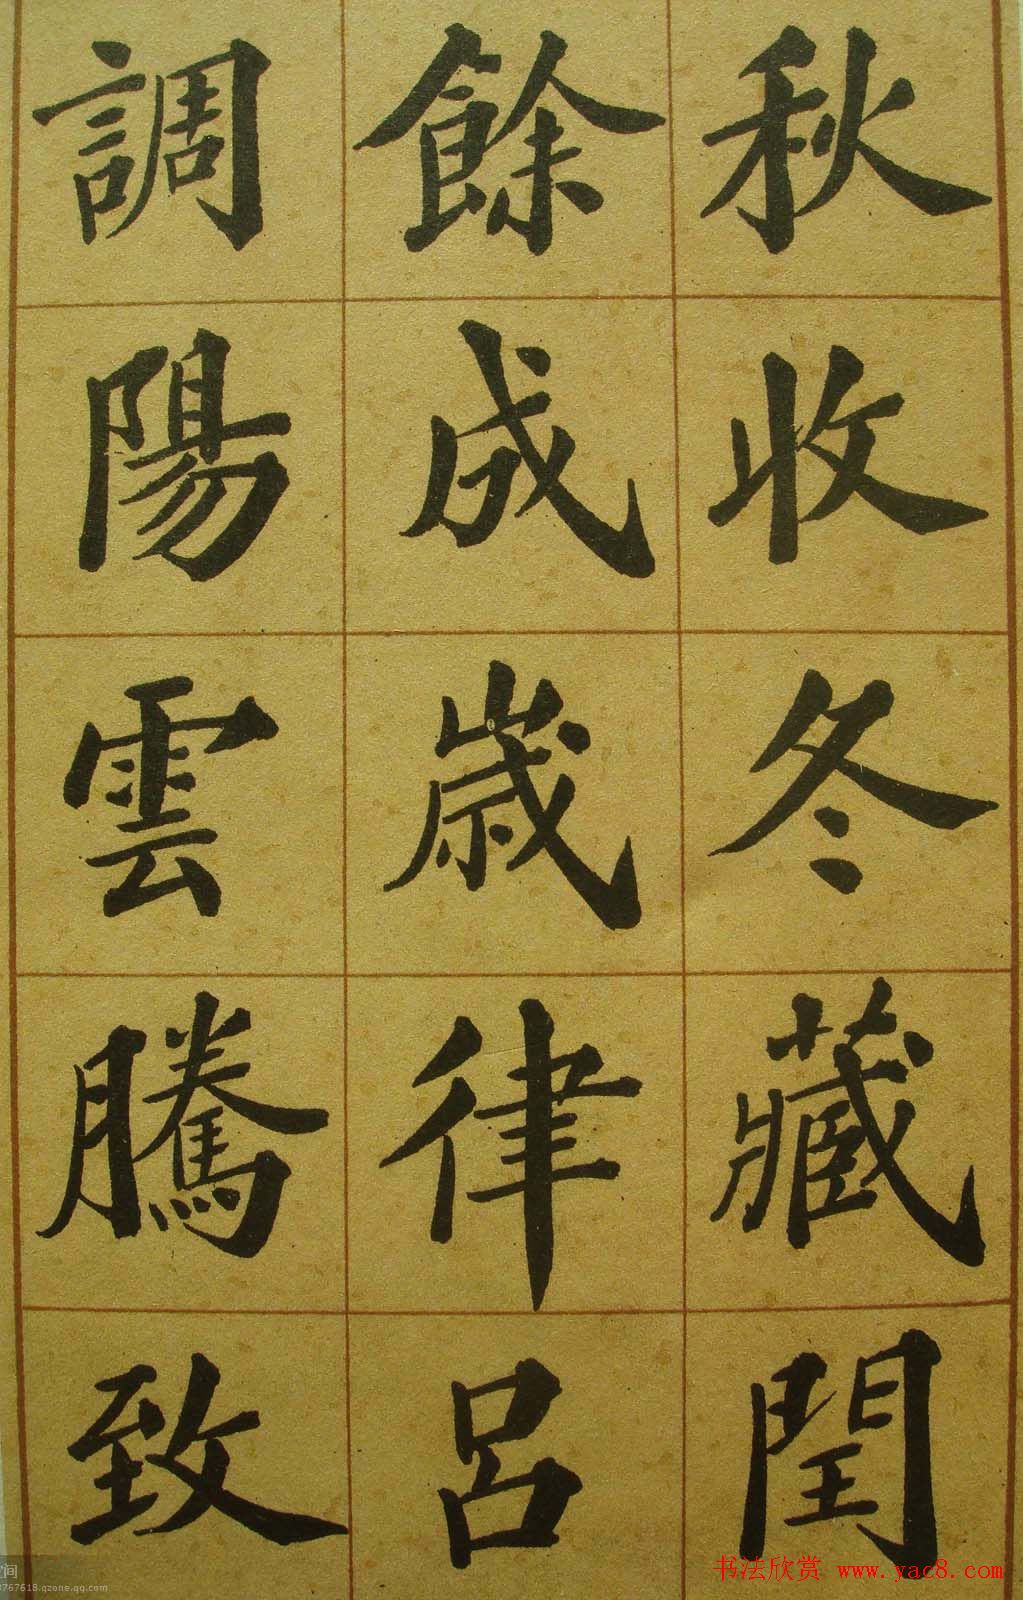 秋收冬藏閏
餘成歲律呂
調陽雲騰致
书法欣赏 www.yac8.com
空间
8767618.qzone.qq.com